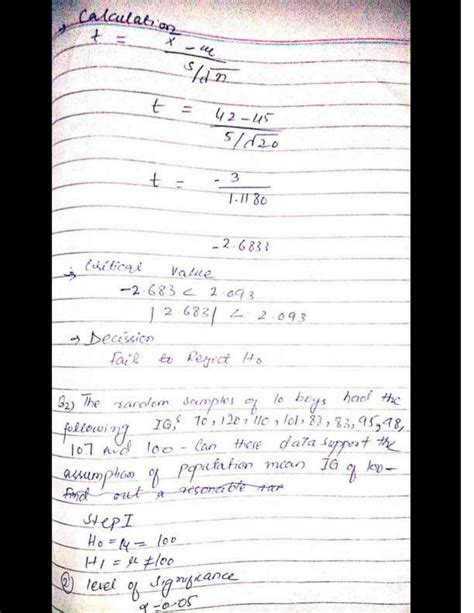 → Calculation
t = x - u
s/√n
t = 42-45
5/√20
t = - 3
1.1180
-2.6833
→ Critical value
-2.683 < 2.093
|2.683| < 2.093
→ Decission
fail to Reject H₀
Q2) The random samples of 10 boys had the
following IQ's 70, 120, 110, 101, 83, 83, 95, 98,
107 and 100 - Can these data support the
assumption of population mean IQ of 100 -
find out a
Step I
H₀ = μ = 100
H1 = μ ≠ 100
② level of significance
α = 0.05